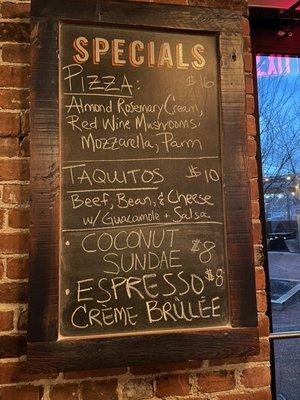 SPECIALS
PIZZA: $16
Almond Rosemary Cream,
Red Wine Mushrooms,
Mozzarella, Parm
TAQUITOS $10
Beef, Bean, & Cheese
w/ Guacamole + Salsa
COCONUT
SUNDAE $8
ESPRESSO $8
CRÈME BRÛLÉE